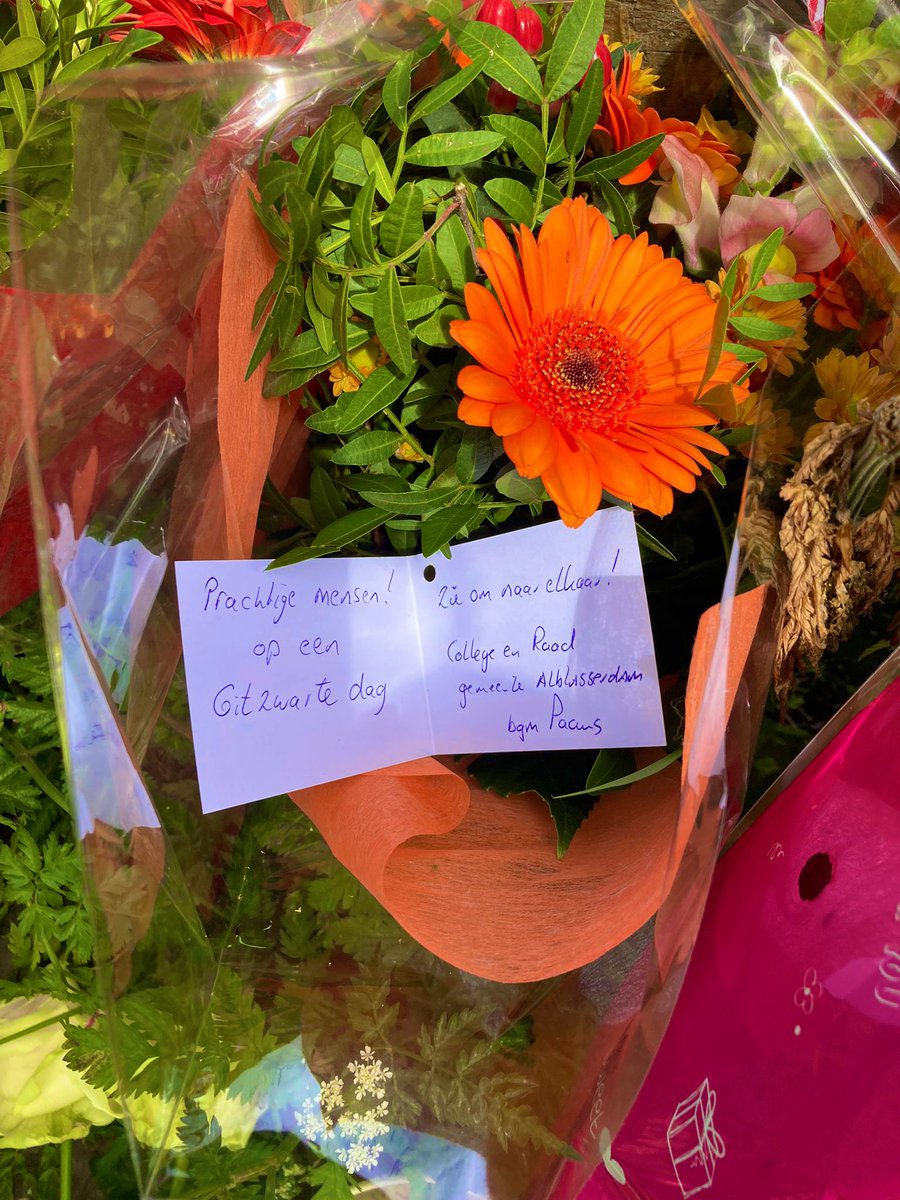 Prachtige mensen!
op een
Gitzwarte dag
Zie om naar elkaar!
College en Raad
gemeente Alblasserdam
bgm Paans